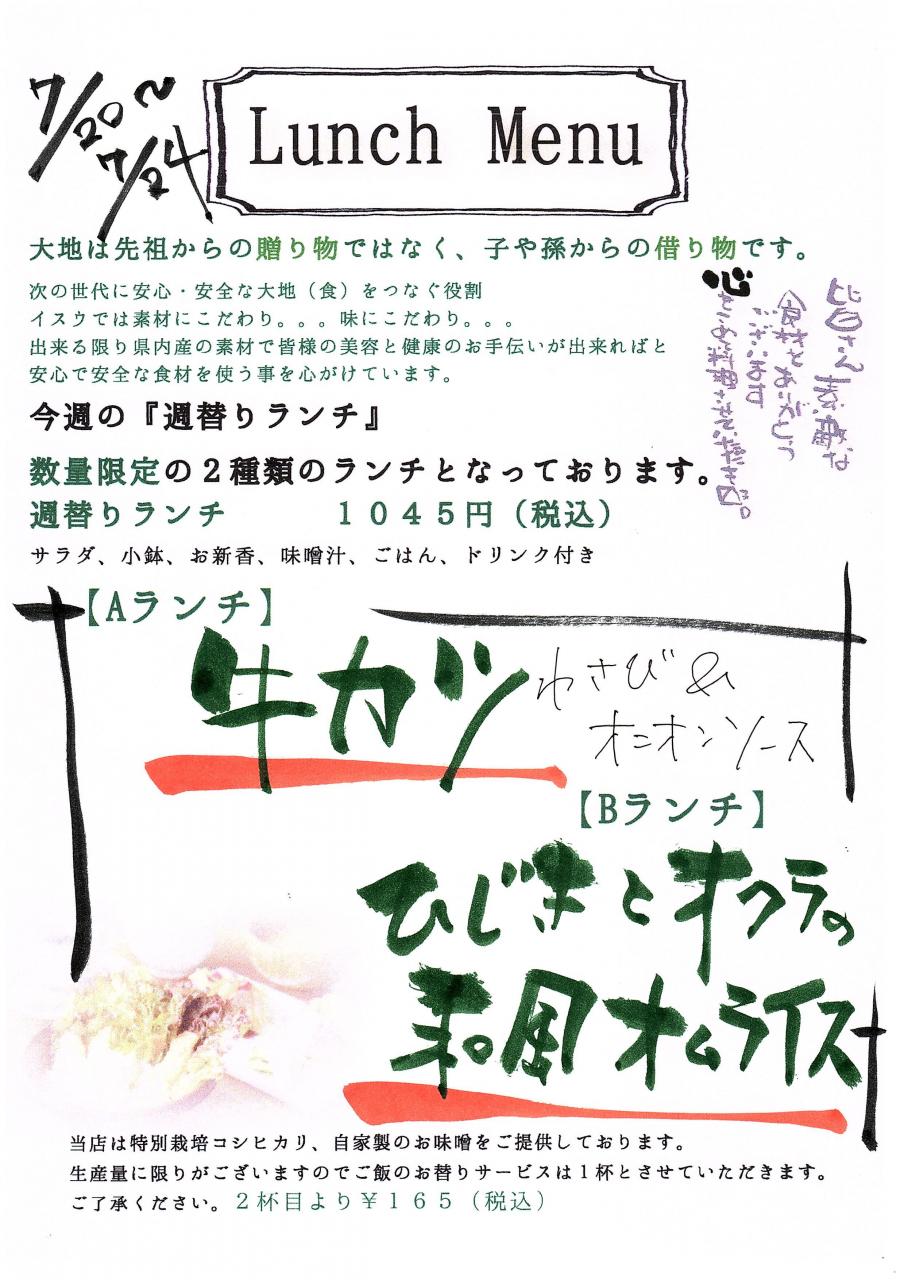 7/20〜
7/24
Lunch Menu
大地は先祖からの贈り物ではなく、子や孫からの借り物です。
次の世代に安心・安全な大地（食）をつなぐ役割
イスウでは素材にこだわり。。。味にこだわり。。。
出来る限り県内産の素材で皆様の美容と健康のお手伝いが出来ればと
安心で安全な食材を使う事を心がけています。
皆さん素敵な
食材をありがとう
ございます
心をこめ料理させていただきます。
今週の『週替りランチ』
数量限定の２種類のランチとなっております。
週替りランチ　１０４５円（税込）
サラダ、小鉢、お新香、味噌汁、ごはん、ドリンク付き
【Aランチ】
牛カツ
わさび&
オニオンソース
【Bランチ】
ひじきとオクラの
和風オムライス
当店は特別栽培コシヒカリ、自家製のお味噌をご提供しております。
生産量に限りがございますのでご飯のお替りサービスは１杯とさせていただきます。
ご了承ください。２杯目より￥１６５（税込）